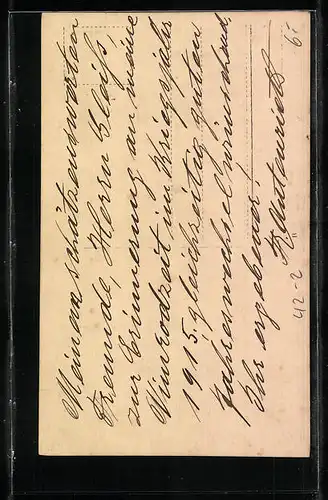 Meinem schätzenswerten
Freunde, Herrn Cleiß,
zur Erinnerung an meine
Nimrodzeit im Kriegsjahr
1915, gleichzeitig guten
Jahreswechsel wünschend,
Ihr ergebener,
Autenrieth
42-2
6.-